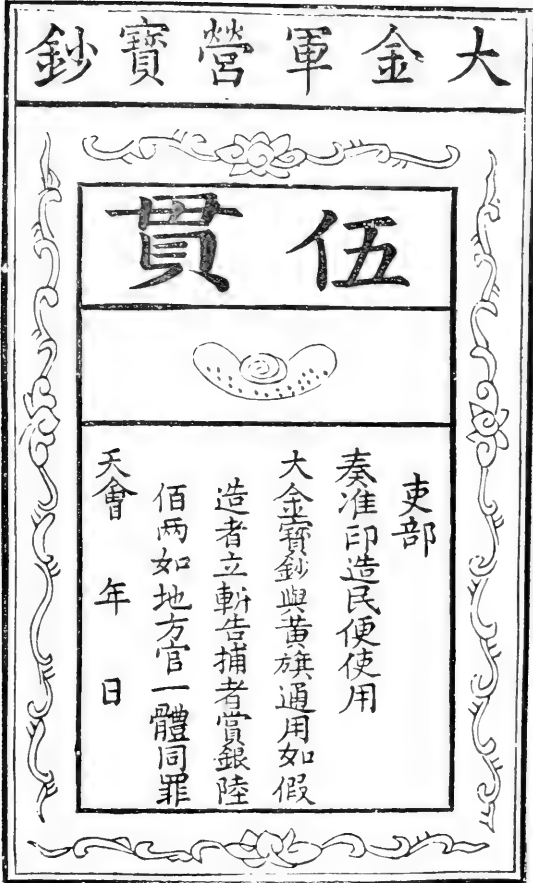 大金軍營寳鈔
伍貫
吏部
奏准印造民便使用
大金寳鈔與黃旗通用如假
造者立斬告捕者賞銀陸
佰两如地方官一體同罪
天會 年 日